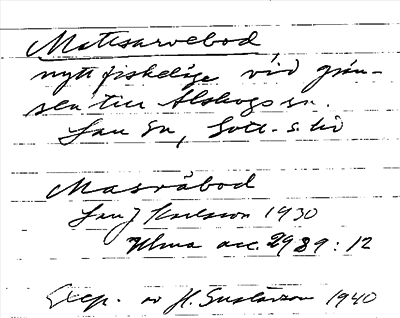 Matesarvebod,
nytt fiskeläge vid grän-
sen till Alskogs sn.
Lau sn, Gotl. s. hd
Masråbod
Lars J Karlsson 1930
Ulma acc. 2989:12
Excp. av H. Gustavson 1940